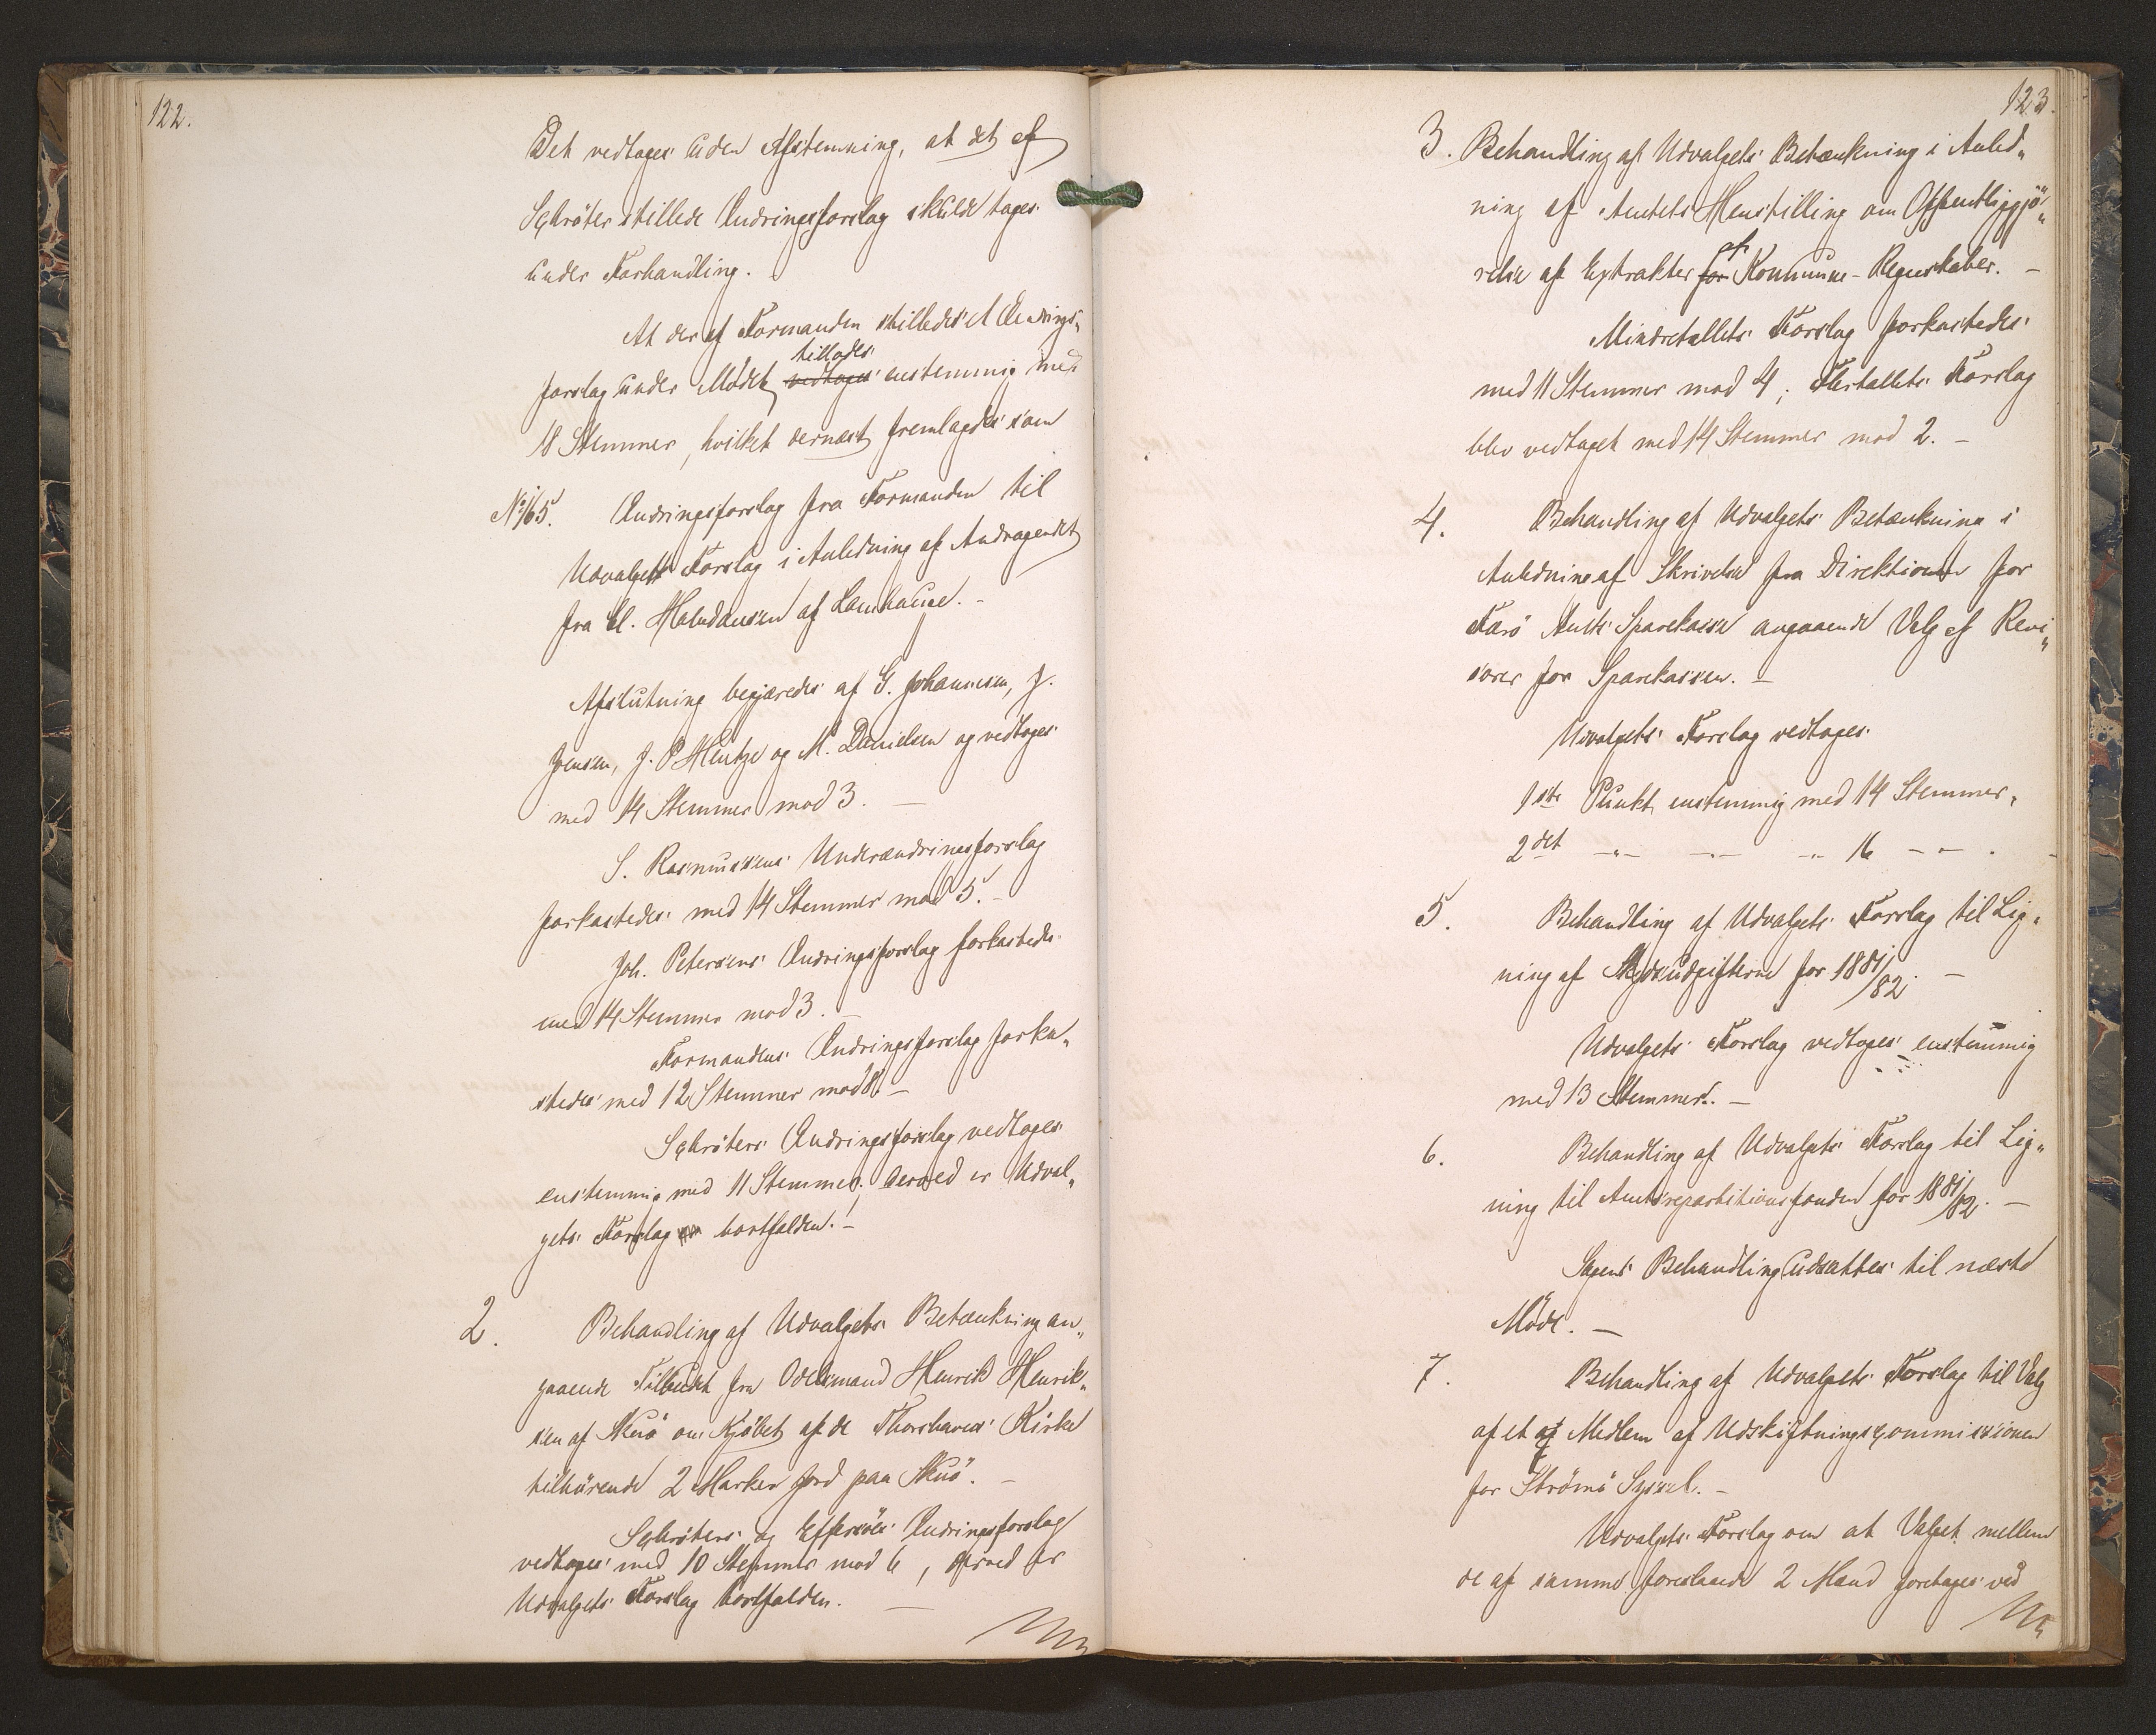 122.
Det vedtoges uden Afstemning, at det af
Schröter stillede Ændringsforslag skulde tages
under Forhandling.
At der af Formanden stilledes et Ændrings„
forslag under Mødet vedtoges tillodes enstemmig med
18 Stemmer, hvilket dernæst fremlagdes som
No 165. Ændringsforslag fra Formanden til
Udvalgets Forslag i Anledning af Andragendet
fra Cl. Haldansen af Lamhauge. -
Afslutning begjæredes af G. Johannesen, J.
Joensen, J. P Hentze og M. Danielsen og vedtoges
med 14 Stemmer mod 3. —
S. Rasmussens Underændringsforslag
forkastedes med 14 Stemmer mod 5. -
Joh. Petersens Ændringsforslag forkastedes
med 14 Stemmer mod 3. —
Formandens Ændringsforslag forka„
stedes med 12 Stemmer mod 8. —
Schröters Ændringsforslag vedtoges
enstemmig med 11 Stemmer; derved er Udval„
gets Forslag bortfalden. -
2. Behandling af Udvalgets Betænkning an„
gaaende Tilbudet fra Odelsmand Henrik Henrik„
sen af Skuö om Kjöbet af de Thorshavns Kirke
tilhörende 2 Marker Jord paa Skuö. —
Schröters og Effersöes Ændringsforslag
vedtoges med 10 Stemmer mod 6, derved er
Udvalgets Forslag bortfalden. —
123.
3. Behandling af Udvalgets Betænkning i Anled„
ning af Amtets Henstilling om Offentliggjö„
relse af Extrakter for af Kommune-Regnskaber. —
Mindretallets Forslag forkastedes
med 11 Stemmer mod 4; Flertallets Forslag
blev vedtaget med 14 Stemmer mod 2. —
4. Behandling af Udvalgets Betænkning i
Anledning af Skrivelse fra Direktionen for
Færö Amts Sparekasse angaaende Valg af Revi„
sorer for Sparekassen. —
Udvalgets Forslag vedtoges
1ste Punkt enstemmig med 14 Stemmer,
2det -„- -„- -„- 16 -„- . -
5. Behandling af Udvalgets Forslag til Lig„
ning af Skydsudgifterne for 1881/82. —
Udvalgets Forslag vedtoges enstemmig
med 13 Stemmer. —
6. Behandling af Udvalgets Forslag til Lig„
ning til Amtsrepartitionsfonden for 1881/82. —
Sagens Behandling udsættes til næste
Möde. —
7. Behandling af Udvalgets Forslag til Valg
af et af Medlem af Udskiftningscommissionen
for Strömö Syssel. -
Udvalgets Forslag om at Valget mellem
de af samme foreslaaede 2 Mænd foretages ved